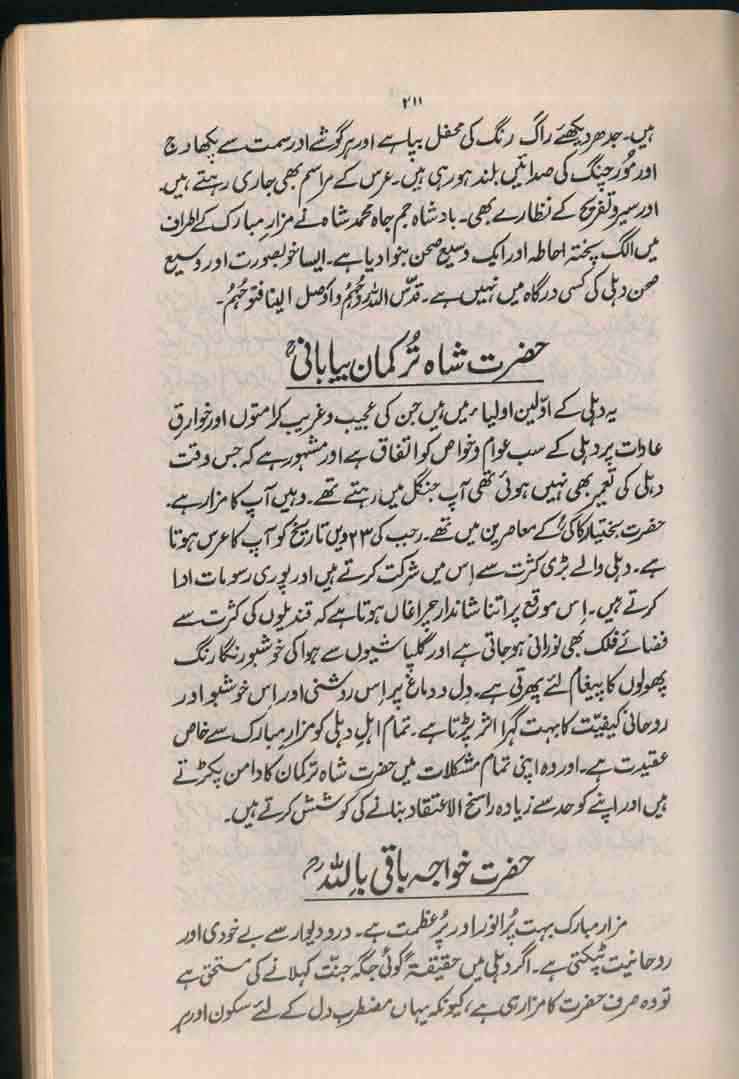 ۲۱۱
ہیں۔ جدھر دیکھئے راگ رنگ کی محفل بپا ہے اور ہر گوشے اور سمت سے پکھاوج
اور مُورچنگ کی صدائیں بلند ہو رہی ہیں۔ عرس کے مراسم بھی جاری رہتے ہیں۔
اور سیر و تفریح کے نظارے بھی۔ بادشاہ جم جاہ محمد شاہ نے مزارِ مبارک کے اطراف
میں الگ پختہ احاطہ اور ایک وسیع صحن بنوا دیا ہے۔ ایسا خوبصورت اور وسیع
صحن دہلی کی کسی درگاہ میں نہیں ہے۔ قدّس اللہ
حضرت شاہ تُرکمان بیابانیؒ
یہ دہلی کے اوّلین اولیاء میں ہیں جن کی عجیب و غریب کرامتوں اور خوارق
عادات پر دہلی کے سب عوام و خواص کو اتفاق ہے اور مشہور ہے کہ جس وقت
دہلی کی تعمیر بھی نہیں ہوئی تھی آپ جنگل میں رہتے تھے۔ وہیں آپ کا مزار ہے۔
حضرت بختیار کاکیؒ کے معاصرین میں تھے۔ رجب کی ۲۳ ویں تاریخ کو آپ کا عرس ہوتا
ہے۔ دہلی والے بڑی کثرت سے اِس میں شرکت کرتے ہیں اور پوری رسومات ادا
کرتے ہیں۔ اِس موقع پر اتنا شاندار چراغاں ہوتا ہے کہ قندیلوں کی کثرت سے
فضائے فلک بھی نورانی ہو جاتی ہے اور گلپاشیوں سے ہوا کی خوشبو رنگارنگ
پھولوں کا پیغام لئے پھرتی ہے۔ دل و دماغ پر اِس روشنی اور اِس خوشبو اور
روحانی کیفیّت کا بہت گہرا اثر پڑتا ہے۔ تمام اہلِ دہلی کو مزارِ مبارک سے خاص
عقیدت ہے۔ اور وہ اپنی تمام مشکلات میں حضرت شاہ ترکمان کا دامن پکڑتے
ہیں اور اپنے کو حد سے زیادہ راسخ الاعتقاد بنانے کی کوشش کرتے ہیں۔
حضرت خواجہ باقی بِاللہؒ
مزارِ مبارک بہت پُر انوار اور پُر عظمت ہے۔ در و دیوار سے بے خودی اور
روحانیت ٹپکتی ہے۔ اگر دہلی میں حقیقۃً کوئی جگہ جنّت کہلانے کی مستحق ہے
تو وہ صرف حضرت کا مزار ہی ہے، کیونکہ یہاں مضطرب دل کے لئے سکون اور ہر